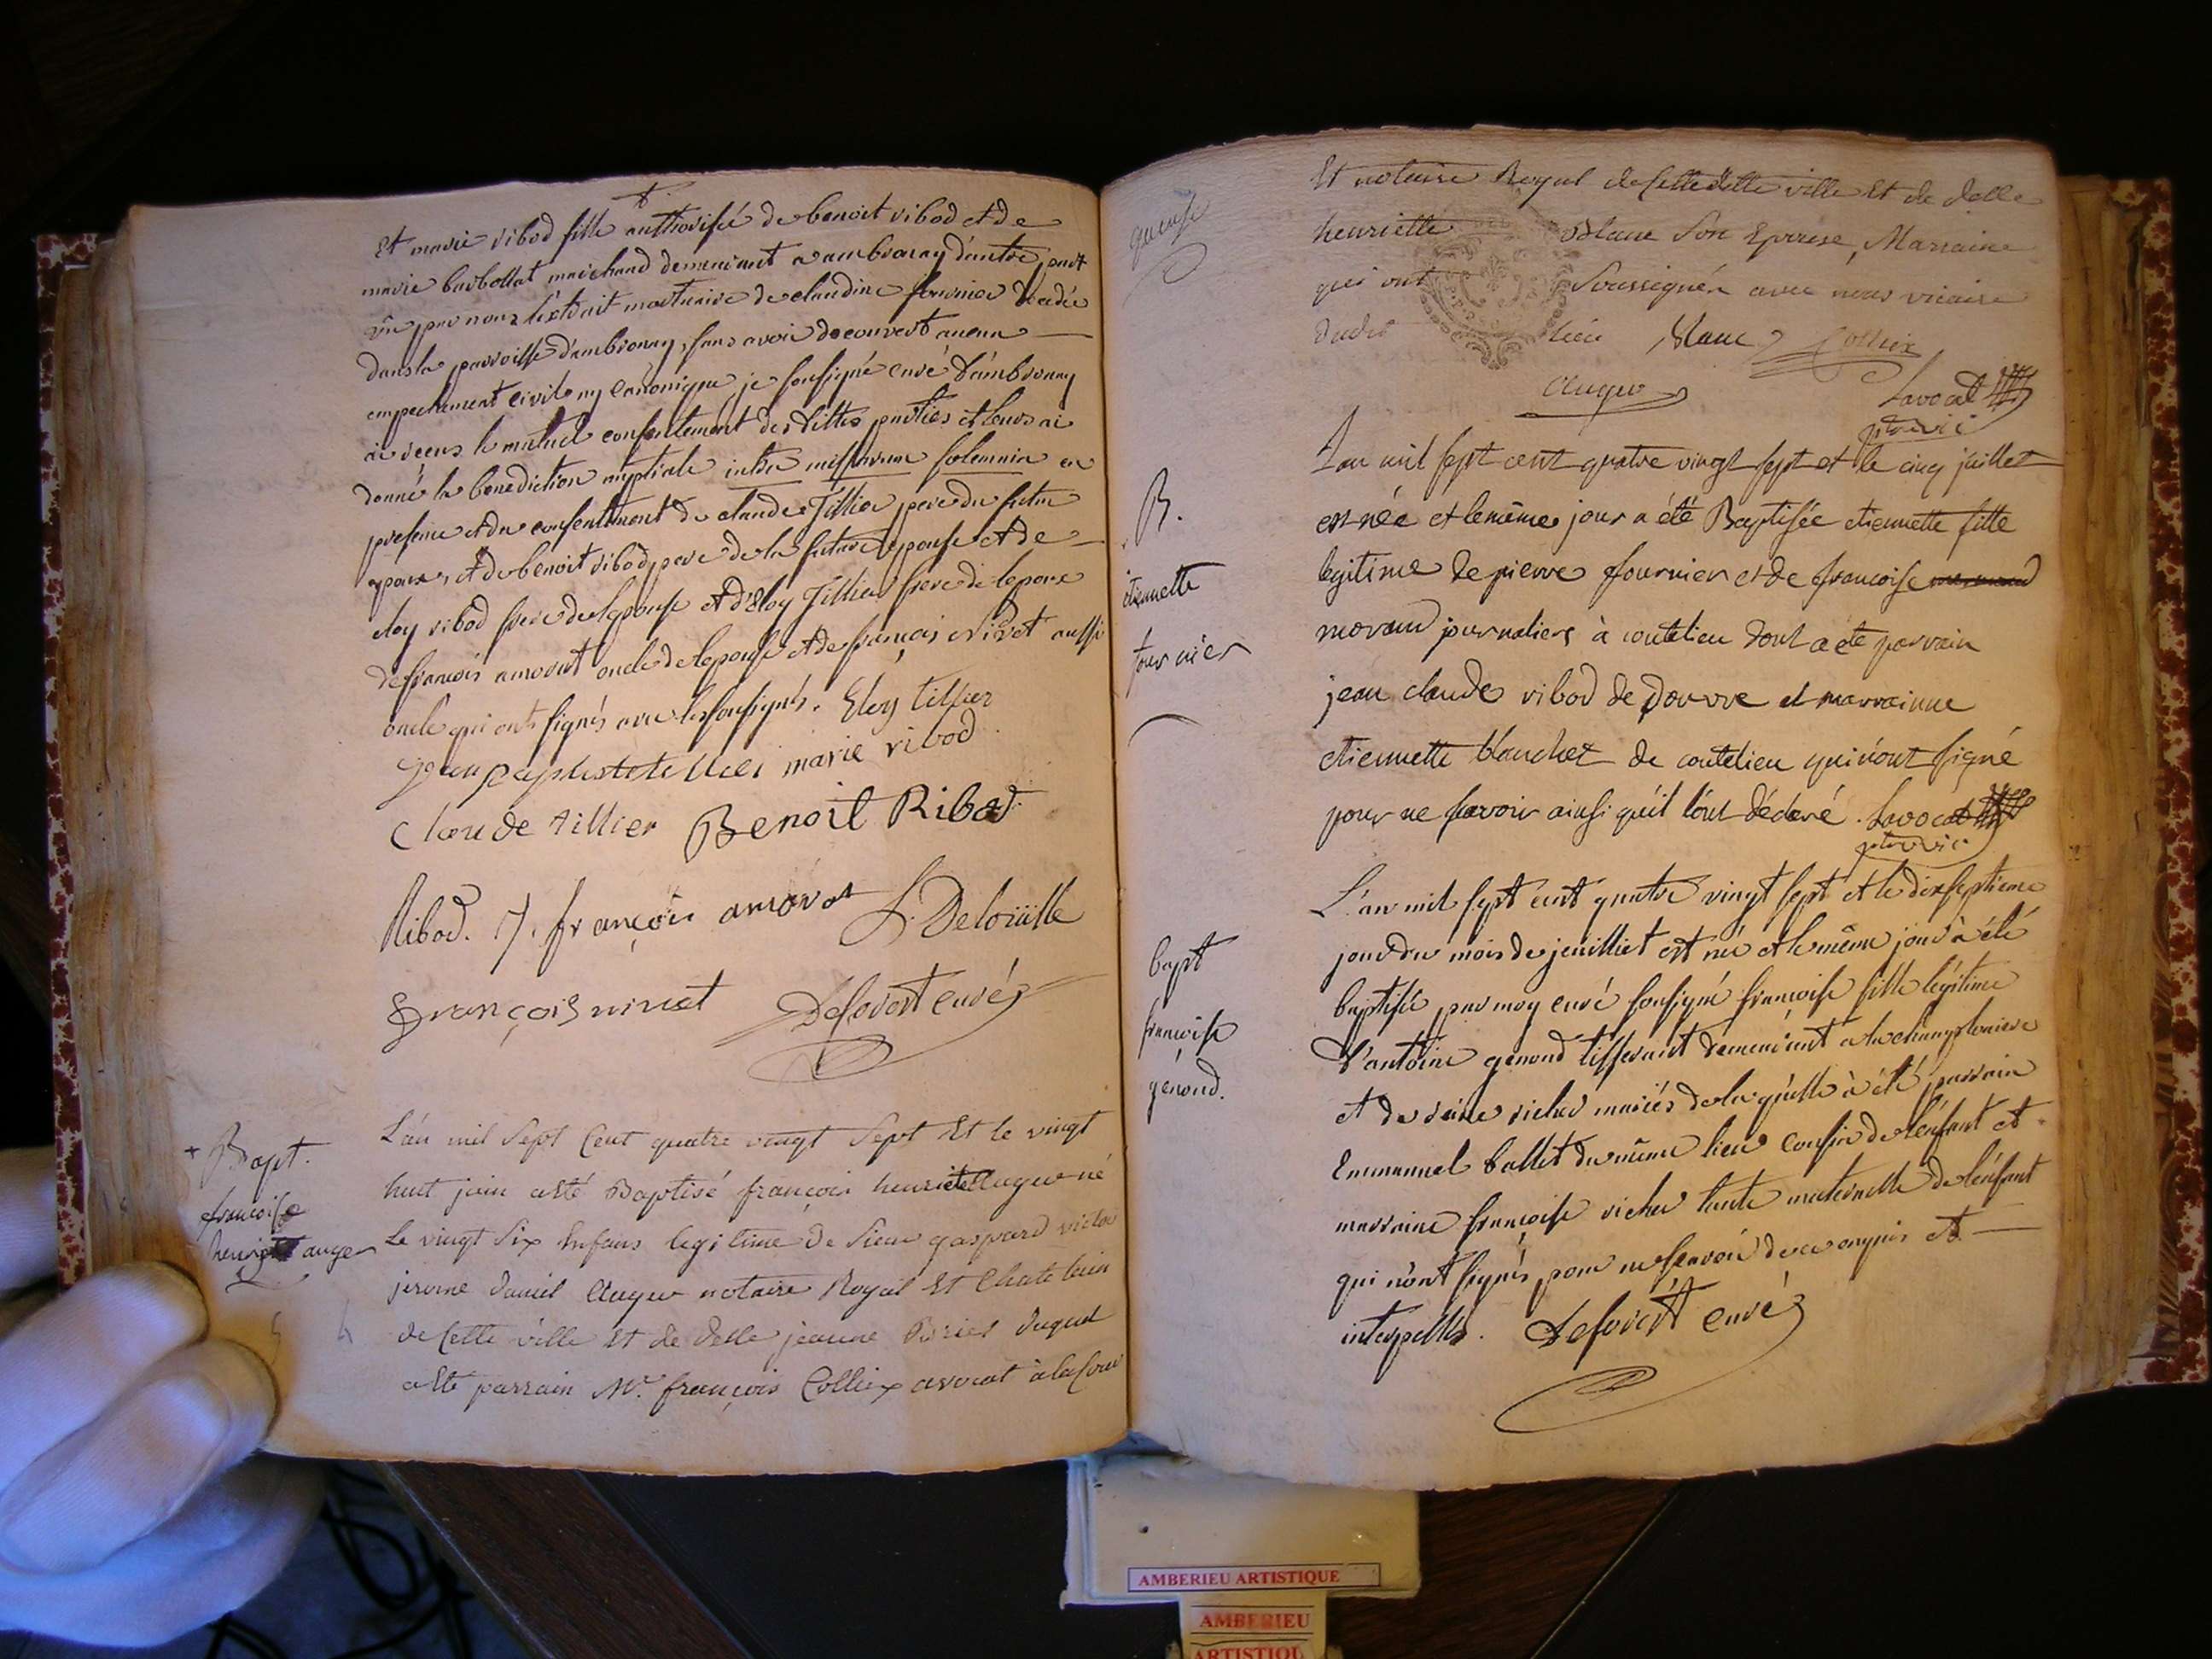 Et marie ribod fille authorisée de benoit ribod et de
marie barbollat marchand demeurant a ambronay d'autre part
vû par nous l'extrait mortuaire de claudine fournier décédée
dans la parroisse d'ambronay, sans avoir découvert aucun
empechement civil ny canonique, je soussigné curé d'ambronay
ai reçus le mutuel consentement des dittes parties et leurs ai
donné la bénédiction nuptiale intra missarum solemnia en
presence et du consentement de claude Tillier pere du futur
epoux, et de benoit ribod pere de la future epouse et de
eloy ribod frere de lepouse et d'Eloy Tillier frere de lepoux
de françois amorat oncle de lepouse et de françois nivet aussi
oncle qui ont signés avec les soussignés. Eloy tillier
jean baptiste tillier marie ribod
Claude tillier Benoit Ribod
Ribod. françois amorat
françois nivet Deforest curé
Bapt.
francoise
henriette auger
L'an mil Sept Cent quatre vingt Sept Et le vingt
huit juin a été Baptisé françois henriette Auger né
Le vingt Six Enfans legitime de Sieur gaspard victor
jerome daniel Auger notaire Royal Et Chatelain
de Cette ville Et de Delle jeanne duquel
a été parrain Mr. françois Colliex avocat à la Cour
Et notaire Royal de Cette ditte ville Et de delle
henriette Blanc Son Epouse, Marraine
qui ont Soussignés avec nous vicaire
dudit lieu Blanc Colliex
Auger
Lavocat
ptre vic
B.
étiennette
fournier
L'an mil sept cent quatre vingt sept et le cinq juillet
est née et le même jour a été Baptisée etiennette fille
legitime de pierre fournier et de francoise
morand journaliers à coutelieu dont a été parrain
jean claude ribod de Douvre et marrainne
etiennette blanchet de coutelieu qui n'ont signé
pour ne savoir ainsi qu'il l'ont déclaré. Lavocat
ptre vic
bapt
francoise
génoud.
L'an mil sept cent quatre vingt sept et le dixseptieme
jour du mois de jeuilliet est née et le même jour à été
baptisée par moy curé soussigné françoise fille légitime
d'antoine génoud tisserant demeurant a la championiere
et de reine richer mariés de laquelle à été parrain
Emmanuel ballet du même lieu cousin de l'énfant et
marraine françoise richer tante maternelle de l'énfant
qui n'ont signés pour ne sçavoir de ce enquis et
interpellés. Deforest curé
AMBERIEU ARTISTIQUE
AMBERIEU
ARTISTIQU